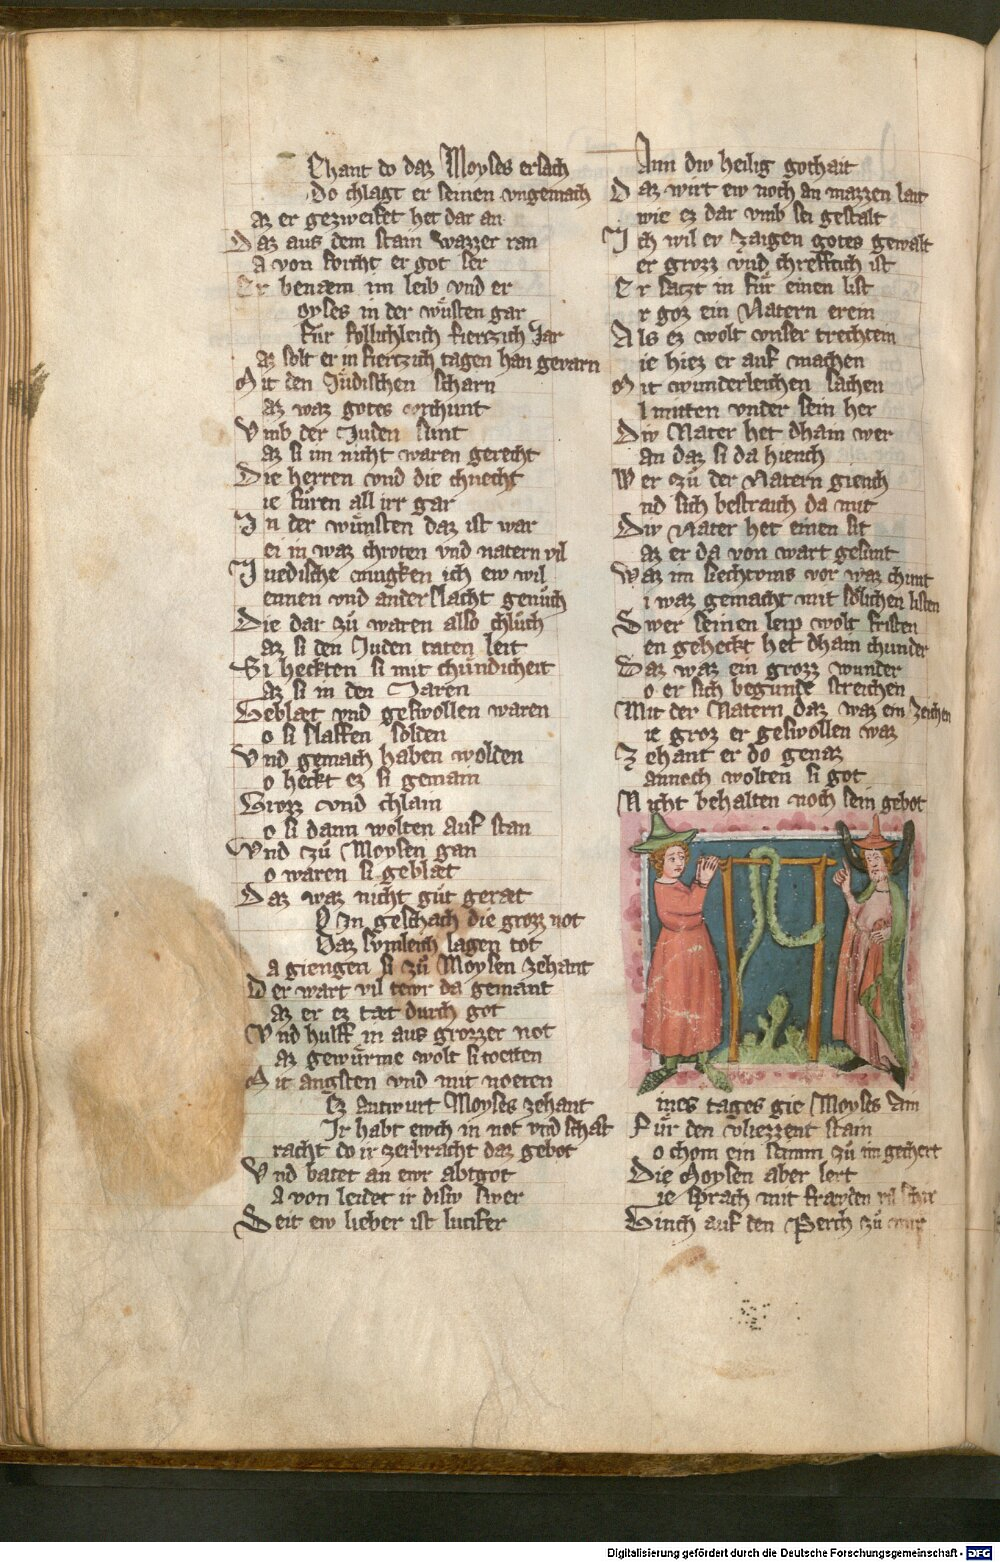 Ehant do daz Moyses ersach
Do chlagt er seinen vngemach
az er gezweifet het dar an
Daz aus dem stain wazzer ran
A von forcht er got ser
Er benaem im leib vnd er
oyses in der wüsten gar
Für follichleich fiertzich Jar
az solt er in fiertzich tagen han geuarn
Mit den Jüdischen scharn
az waz gotes vrchunt
Vmb der Juden sunt
az si im nicht waren gerecht
Die herren vnd die chnecht
ie füren all irr gar
In der wünsten daz ist war
ei in waz chroten vnd natern vil
Juedische mugken ich ew wil
ennen vnd anderslacht genüch
Die dar zü waren also chlüch
az si den Juden taten leit
Si heckten si mit chündicheit
az si in den Jaren
Geblaet vnd geswollen waren
o si slaffen solden
Vnd gemach haben wolden
o heckt ez si gemain
Grozz vnd chlain
o si dann wolten auf stan
Vnd zü Moysen gan
o waren si geblaet
Daz waz nicht güt geraet
O In geschach die grozz not
Daz sümleich lagen tot
a giengen si zü Moysen zehant
Der wart vil tewr da gemant
az er ez taet durch got
Vnd hulff in aus grozzer not
az gewürme wolt si toeten
Mit angsten vnd mit noeten
Ez antwurt Moyses zehant
Ir habt ewch in not vnd schaft
racht do ir zerbracht daz gebot
Vnd batet an ewr abtgot
A von leidet ir disiv swer
Seit ew lieber ist lucifer
Ann diw heilig gothait
Daz wirt ew noch an mazzen lait
wie ez dar vmb sei gestalt
Ich wil ev zaigen gotes gewalt
er grozz vnd chrefftich ist
Er satzt in für einen list
r goz ein Natern erein
Als ez wolt vnser trechtein
ie hiez er auf machen
Mit wunderleichen sachen
I mitten vnder sein her
Diw Nater het dhain wer
an daz si da hiench
Wer zü der Natern giench
nd sich bestraich da mit
Diw Nater het einen sit
az er da von wart gesunt
Waz im siechtvms vor waz chunt
i waz gemacht mit sölichen listen
Swer seinen leip wolt fristen
en geheckt het dhain chunder
Daz waz ein grozz wunder
o er sich begunde streichen
Mit der Natern daz waz ein zeichen
ie groz er geswollen waz
Zehant er do genaz
annoch wolten si got
Nicht behalten noch sein gebot
ines tages gie Moyses am
Für den vliezzent stain
o chom ein stimm zü im gechert
Die Moysen aber lert
ie sprach mit fraeuden vil schir
Ginch auf den Perch zü mir
Digitalisierung gefördert durch die Deutsche Forschungsgemeinschaft - DFG